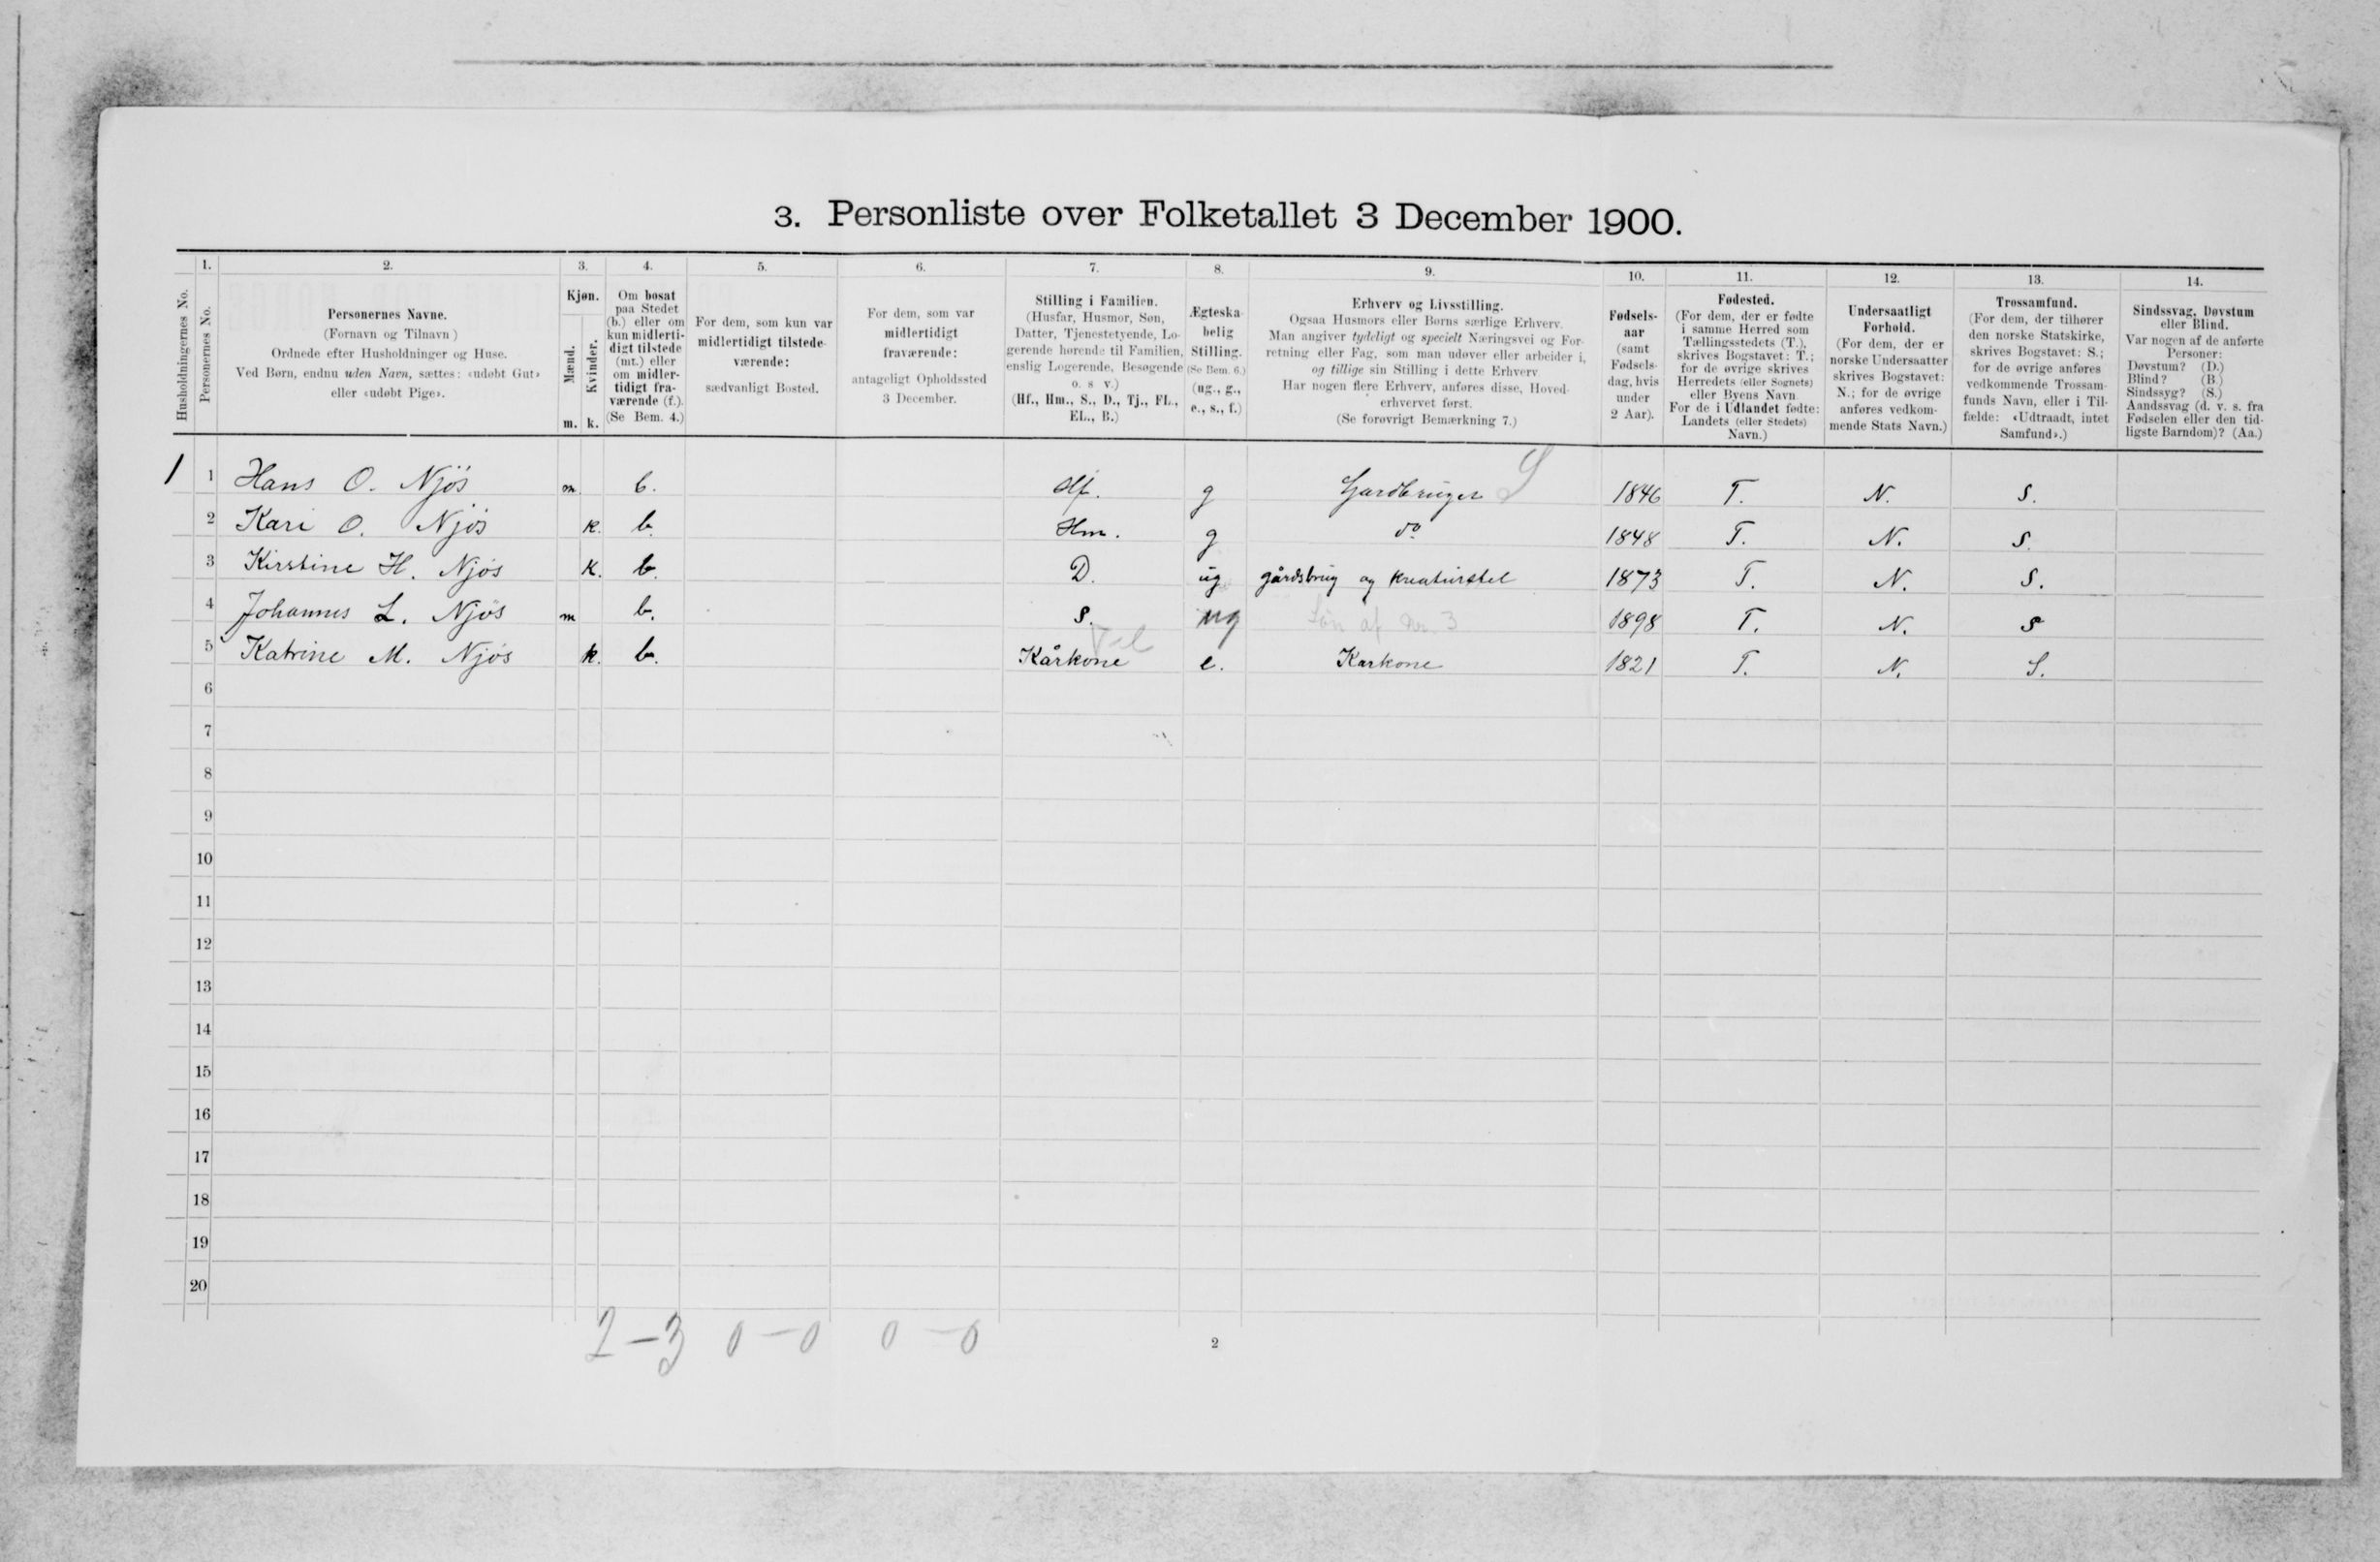 3. Personliste over Folketallet 3 December 1900.
1. 2. 3. 4. 5. 6. 7. 8. 9. 10. 11. 12. 13. 14.
Husholdningernes No.
Personernes No.
Personernes Navne.
(Fornavn og Tilnavn)
Ordnede efter Husholdninger og Huse.
Ved Børn, endnu uden Navn, sættes: «udøbt Gut»
eller «udøbt Pige».
Kjøn.
Mænd.
Kvinder.
m. k.
Om bosat
paa Stedet
(b.) eller om
kun midlerti-
digt tilstede
(mt.) eller
om midler-
tidigt fra-
værende (f.).
(Se Bem. 4.)
For dem, som kun var
midlertidigt tilstede-
værende:
sædvanligt Bosted.
For dem, som var
midlertidigt
fraværende:
antageligt Opholdssted
3 December.
Stilling i Familien.
(Husfar, Husmor, Søn,
Datter, Tjenestetyende, Lo-
gerende hørende til Familien,
enslig Logerende, Besøgende
o. s v.)
(Hf., Hm., S., D., Tj., FL.,
EL., B.)
Ægteska-
belig
Stilling.
(Se Bem. 6.)
(ug., g.,
e., s., f.)
Erhverv og Livsstilling.
Ogsaa Husmors eller Børns særlige Erhverv.
Man angiver tydeligt og specielt Næringsvei og For-
retning eller Fag, som man udøver eller arbeider i,
og tillige sin Stilling i dette Erhverv
Har nogen flere Erhverv, anføres disse, Hoved-
erhvervet først.
(Se forøvrigt Bemærkning 7.)
Fødsels-
aar
(samt
Fødsels-
dag, hvis
under
2 Aar).
Fødested.
(For dem, der er fødte
i samme Herred som
Tællingsstedets (T.),
skrives Bogstavet: T.;
for de øvrige skrives
Herredets (eller Sognets)
eller Byens Navn
For de i Udlandet fødte:
Landets (eller Stedets)
Navn.)
Undersaatligt
Forhold.
(For dem, der er
norske Undersaatter
skrives Bogstavet:
N.; for de øvrige
anføres vedkom-
mende Stats Navn.)
Trossamfund.
(For dem, der tilhører
den norske Statskirke,
skrives Bogstavet: S.;
for de øvrige anføres
vedkommende Trossam-
funds Navn, eller i Til-
fælde: «Udtraadt, intet
Samfund».)
Sindssvag, Døvstum
eller Blind.
Var nogen af de anførte
Personer:
Døvstum? (D.)
Blind? (B.)
Sindssyg? (S.)
Aandssvag (d. v. s. fra
Fødselen eller den tid-
ligste Barndom)? (Aa.)
1 1 Hans O. Njös m. b. Hf. g Gardbruger S 1846 T. N. S.
2 Kari O. Njös k. b. Hm. g do 1848 T. N. S.
3 Kirstine H. Njös k. b. D. ug gårdsbrug og kreaturstel 1873 T. N. S.
4 Johannes L. Njös m b. S. ug Søn af Nr. 3 1898 T. N. S
5 Katrine M. Njös k. b. Kårkone e. Karkone 1821 T. N. S.
6
7
8
9
10
11
12
13
14
15
16
17
18
19
20
2-3 0-0 0-0
2